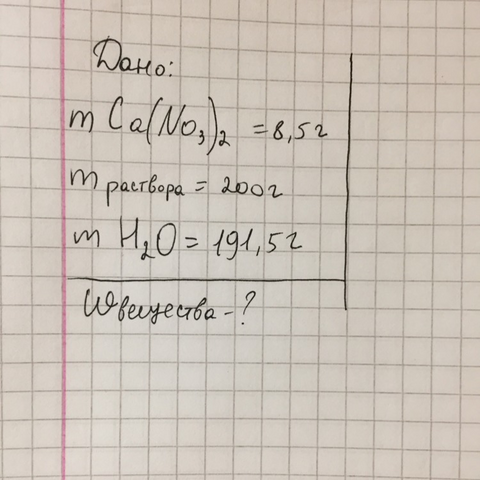 Дано:
m Ca(NO₃)₂ = 8,5г
m раствора = 200г
m H₂O = 191,5г
W вещества - ?